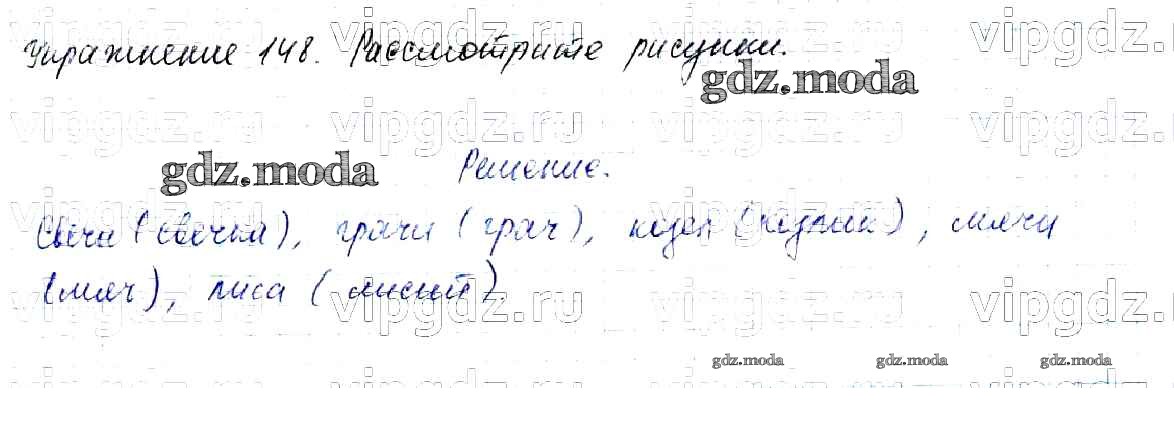 Упражнение 148. Рассмотрите рисунки.
gdz.moda
gdz.moda Решение.
Свеча (свечка), грачи (грач), козел (козлик), мячи
(мяч), лиса (лисит)
gdz.moda gdz.moda gdz.moda
vipgdz.ru vipgdz.ru vipgdz.ru vipgdz.ru